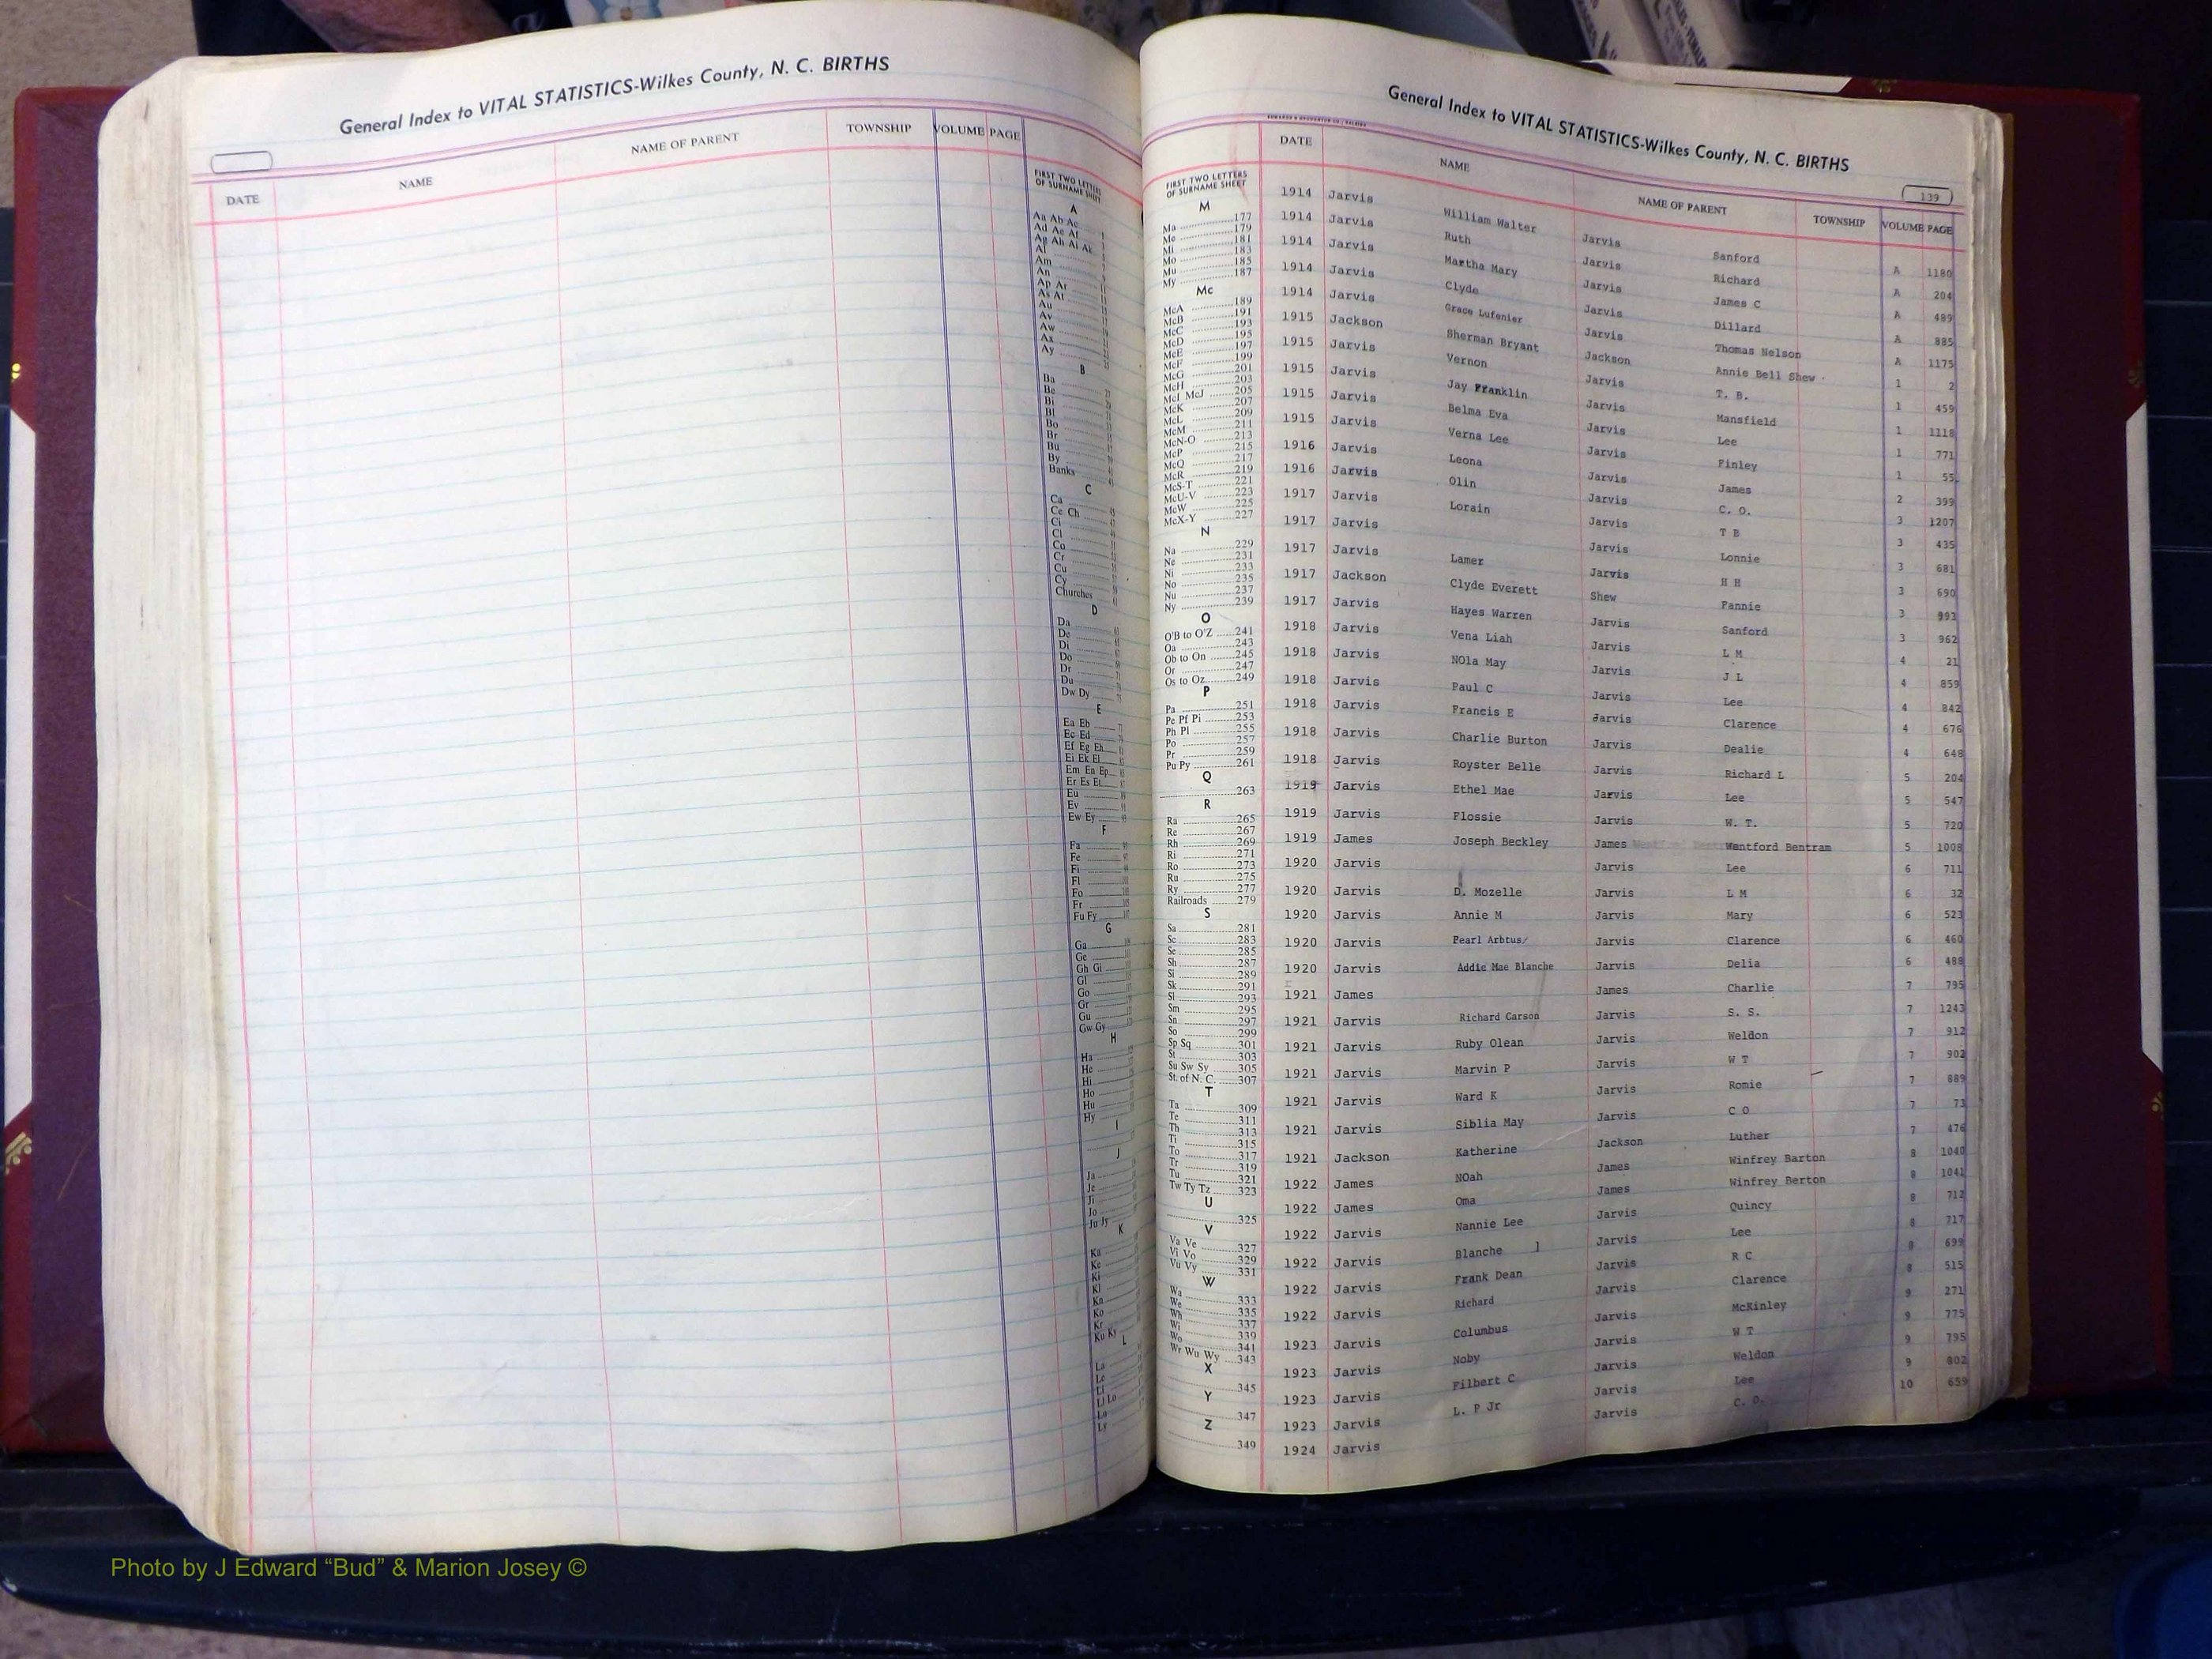 General Index to VITAL STATISTICS-Wilkes County, N. C. BIRTHS
DATE NAME NAME OF PARENT TOWNSHIP VOLUME PAGE
FIRST TWO LETTERS
OF SURNAME SHEET
A
Aa Ab Ac
Ad Ae Af
Ag Ah Ai Ak
Al
Am
An
Ap Ar
As At
Au
Av
Aw
Ax
Ay
B
Ba
Be
Bi
Bl
Bo
Br
Bu
By
Banks
C
Ca
Ce Ch
Ci
Cl
Co
Cr
Cu
Cy
Churches
D
Da
De
Di
Do
Dr
Du
Dw Dy
E
Ea Eb
Ec Ed
Ef Eg Eh
Ei Ek El
Em En Ep
Er Es Et
Eu
Ev
Ew Ey
F
Fa
Fe
Fi
Fl
Fo
Fr
Fu Fy
G
Ga
Ge
Gh Gi
Gl
Go
Gr
Gu
Gw Gy
H
Ha
He
Hi
Ho
Hu
Hy
I
J
Ja
Je
Ji
Jo
Ju Jy
K
Ka
Ke
Ki
Kl
Kn
Ko
Kr
Ku Ky
L
La
Le
Li
Ll Lo
Lu
Ly
General Index to VITAL STATISTICS-Wilkes County, N. C. BIRTHS
139
DATE NAME NAME OF PARENT TOWNSHIP VOLUME PAGE
FIRST TWO LETTERS
OF SURNAME SHEET
M
Ma 177
Me 179
Mi 181
Mo 183
Mu 185
My 187
Mc
McA 189
McB 191
McC 193
McD 195
McE 197
McF 199
McG 201
McH 203
McI McJ 205
McK 207
McL 209
McM 211
McN-O 213
McP 215
McQ 217
McR 219
McS-T 221
McU-V 223
McW 225
McX-Y 227
N
Na 229
Ne 231
Ni 233
No 235
Nu 237
Ny 239
O
O'B to O'Z 241
Oa 243
Ob to On 245
Or 247
Os to Oz 249
P
Pa 251
Pe Pf Pi 253
Ph Pl 255
Po 257
Pr 259
Pu Py 261
Q
263
R
Ra 265
Re 267
Rh 269
Ri 271
Ro 273
Ru 275
Ry 277
Railroads 279
S
Sa 281
Sc 283
Se 285
Sh 287
Si 289
Sk 291
Sl 293
Sm 295
Sn 297
So 299
Sp Sq 301
St 303
Su Sw Sy 305
St. of N. C. 307
T
Ta 309
Te 311
Th 313
Ti 315
To 317
Tr 319
Tu 321
Tw Ty Tz 323
U
325
V
Va Ve 327
Vi Vo 329
Vu Vy 331
W
Wa 333
We 335
Wh 337
Wi 339
Wo 341
Wr Wu Wy 343
X
345
Y
347
Z
349
1914 Jarvis William Walter Jarvis Sanford A 1180
1914 Jarvis Ruth Jarvis Richard A 204
1914 Jarvis Martha Mary Jarvis James C A 489
1914 Jarvis Clyde Jarvis Dillard A 885
1914 Jarvis Grace Lufenier Jarvis Thomas Nelson A 1175
1915 Jackson Sherman Bryant Jackson Annie Bell Shew 1 2
1915 Jarvis Vernon Jarvis T. B. 1 459
1915 Jarvis Jay Franklin Jarvis Mansfield 1 1118
1915 Jarvis Belma Eva Jarvis Lee 1 771
1915 Jarvis Verna Lee Jarvis Finley 1 55
1916 Jarvis Leona Jarvis James 2 399
1916 Jarvis Olin Jarvis C. O. 3 1207
1917 Jarvis Lorain Jarvis T B 3 435
1917 Jarvis Jarvis Lonnie 3 681
1917 Jarvis Lamer Jarvis H H 3 690
1917 Jackson Clyde Everett Shew Fannie 3 993
1917 Jarvis Hayes Warren Jarvis Sanford 3 962
1918 Jarvis Vena Liah Jarvis L M 4 21
1918 Jarvis NOla May Jarvis J L 4 859
1918 Jarvis Paul C Jarvis Lee 4 842
1918 Jarvis Francis E Jarvis Clarence 4 676
1918 Jarvis Charlie Burton Jarvis Dealie 4 648
1918 Jarvis Royster Belle Jarvis Richard L 5 204
1919 Jarvis Ethel Mae Jarvis Lee 5 547
1919 Jarvis Flossie Jarvis W. T. 5 720
1919 James Joseph Beckley James Wentford Bentram 5 1008
1920 Jarvis Jarvis Lee 6 711
1920 Jarvis D. Mozelle Jarvis L M 6 32
1920 Jarvis Annie M Jarvis Mary 6 523
1920 Jarvis Pearl Arbtus Jarvis Clarence 6 460
1920 Jarvis Addie Mae Blanche Jarvis Delia 6 488
1921 James James Charlie 7 795
1921 Jarvis Richard Carson Jarvis S. S. 7 1243
1921 Jarvis Ruby Olean Jarvis Weldon 7 912
1921 Jarvis Marvin P Jarvis W T 7 902
1921 Jarvis Ward K Jarvis Romie 7 889
1921 Jarvis Siblia May Jarvis C O 7 73
1921 Jackson Katherine Jackson Luther 7 476
1922 James NOah James Winfrey Barton 8 1040
1922 James Oma James Winfrey Berton 8 1041
1922 Jarvis Nannie Lee Jarvis Quincy 8 712
1922 Jarvis Blanche J Jarvis Lee 8 717
1922 Jarvis Frank Dean Jarvis R C 8 699
1922 Jarvis Richard Jarvis Clarence 8 515
1923 Jarvis Columbus Jarvis McKinley 9 271
1923 Jarvis Noby Jarvis W T 9 775
1923 Jarvis Filbert C Jarvis Weldon 9 795
1923 Jarvis L. P Jr Jarvis Lee 9 802
1924 Jarvis Jarvis C. O. 10 659
Photo by J Edward “Bud” & Marion Josey ©